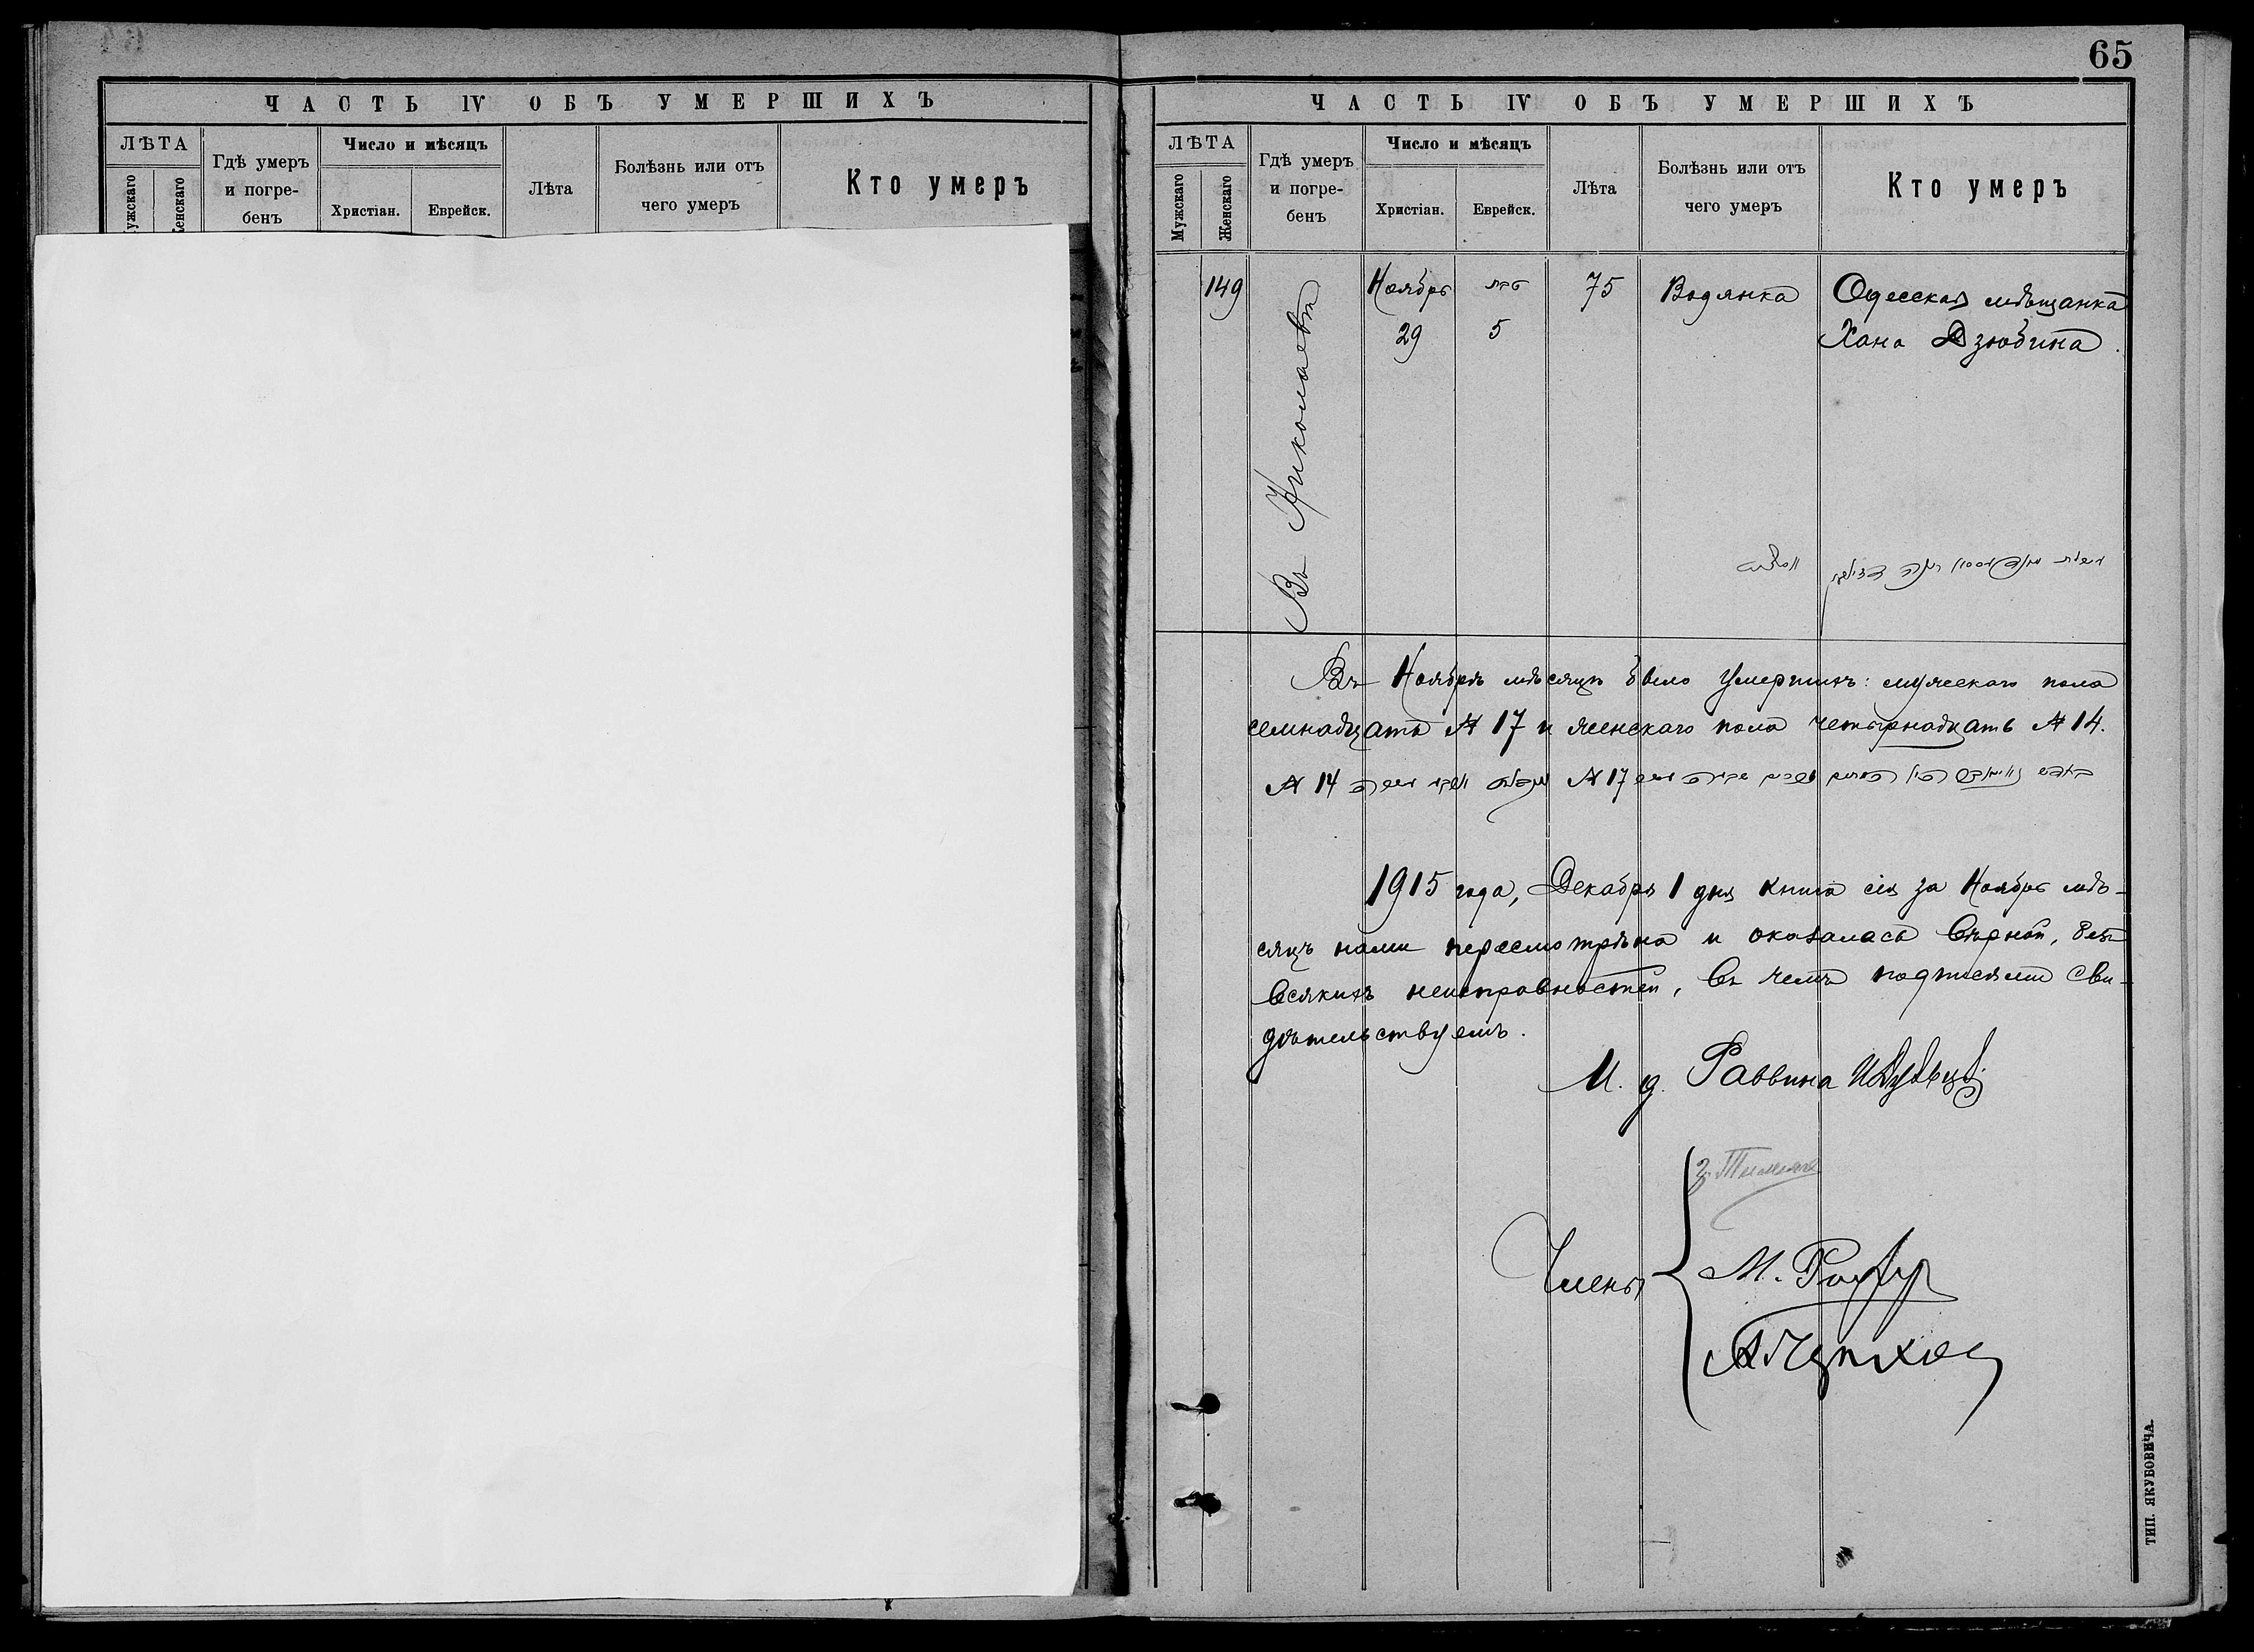 ЧАСТЬ IV ОБЪ УМЕРШИХЪ
ЛѢТА
Мужскаго
Женскаго
Гдѣ умеръ
и погре-
бенъ
Число и мѣсяцъ
Христіан.
Еврейск.
Лѣта
Болѣзнь или отъ
чего умеръ
Кто умеръ
65
ЧАСТЬ IV ОБЪ УМЕРШИХЪ
ЛѢТА
Мужскаго
Женскаго
Гдѣ умеръ
и погре-
бенъ
Число и мѣсяцъ
Христіан.
Еврейск.
Лѣта
Болѣзнь или отъ
чего умеръ
Кто умеръ
149
Въ Николаевѣ
Ноябрь
29
טבת
5
75
Водянка
Одесская мѣщанка
Хана Дзюбина
Въ Ноябрѣ мѣсяцѣ было умершихъ: мужескаго пола
семнадцать № 17 и женскаго пола четырнадцать № 14.
№ 14 № 17
1915 года, Декабря 1 дня книга сія за Ноябрь мѣ-
сяцъ нами пересмотрѣна и оказалась вѣрной, безъ
всякихъ неисправностей, въ чемъ подписями сви-
дѣтельствуемъ.
И. д. Раввина
Члены
М.
ТИП. ЯКУБОВИЧА.